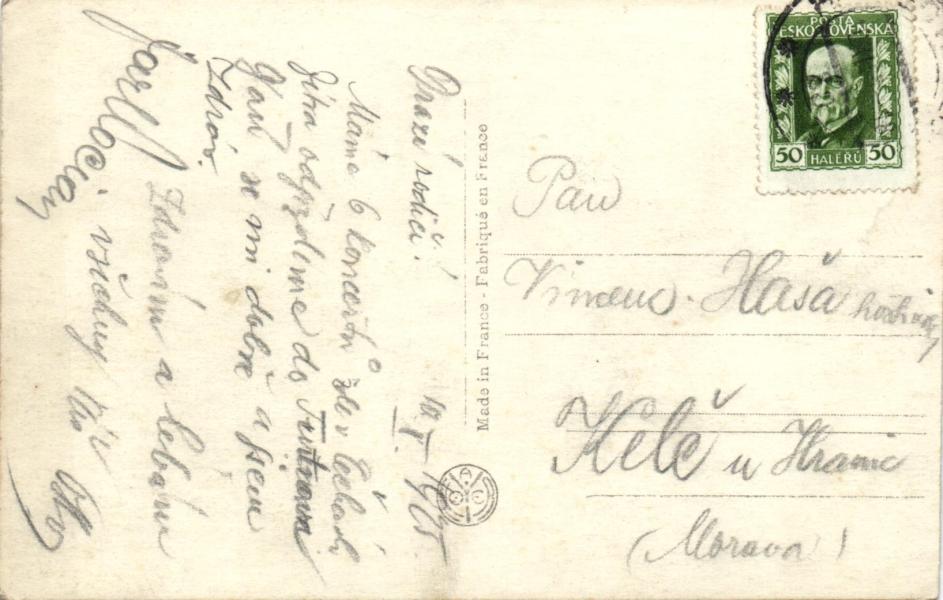 Drazí rodiče!
10/V 1925
Máme 6 koncertů zde v Čechách
Zítra odjíždíme do Trutnova
Daří se mi dobře a jsem
zdráv.
Zdravím a líbám
všechny Váš
Made in France - Fabriqué en France
POŠTA
ČESKOSLOVENSKÁ
50 HALÉŘŮ 50
Pan
Vincenc Haša
Kelč u Hranic
(Morava)